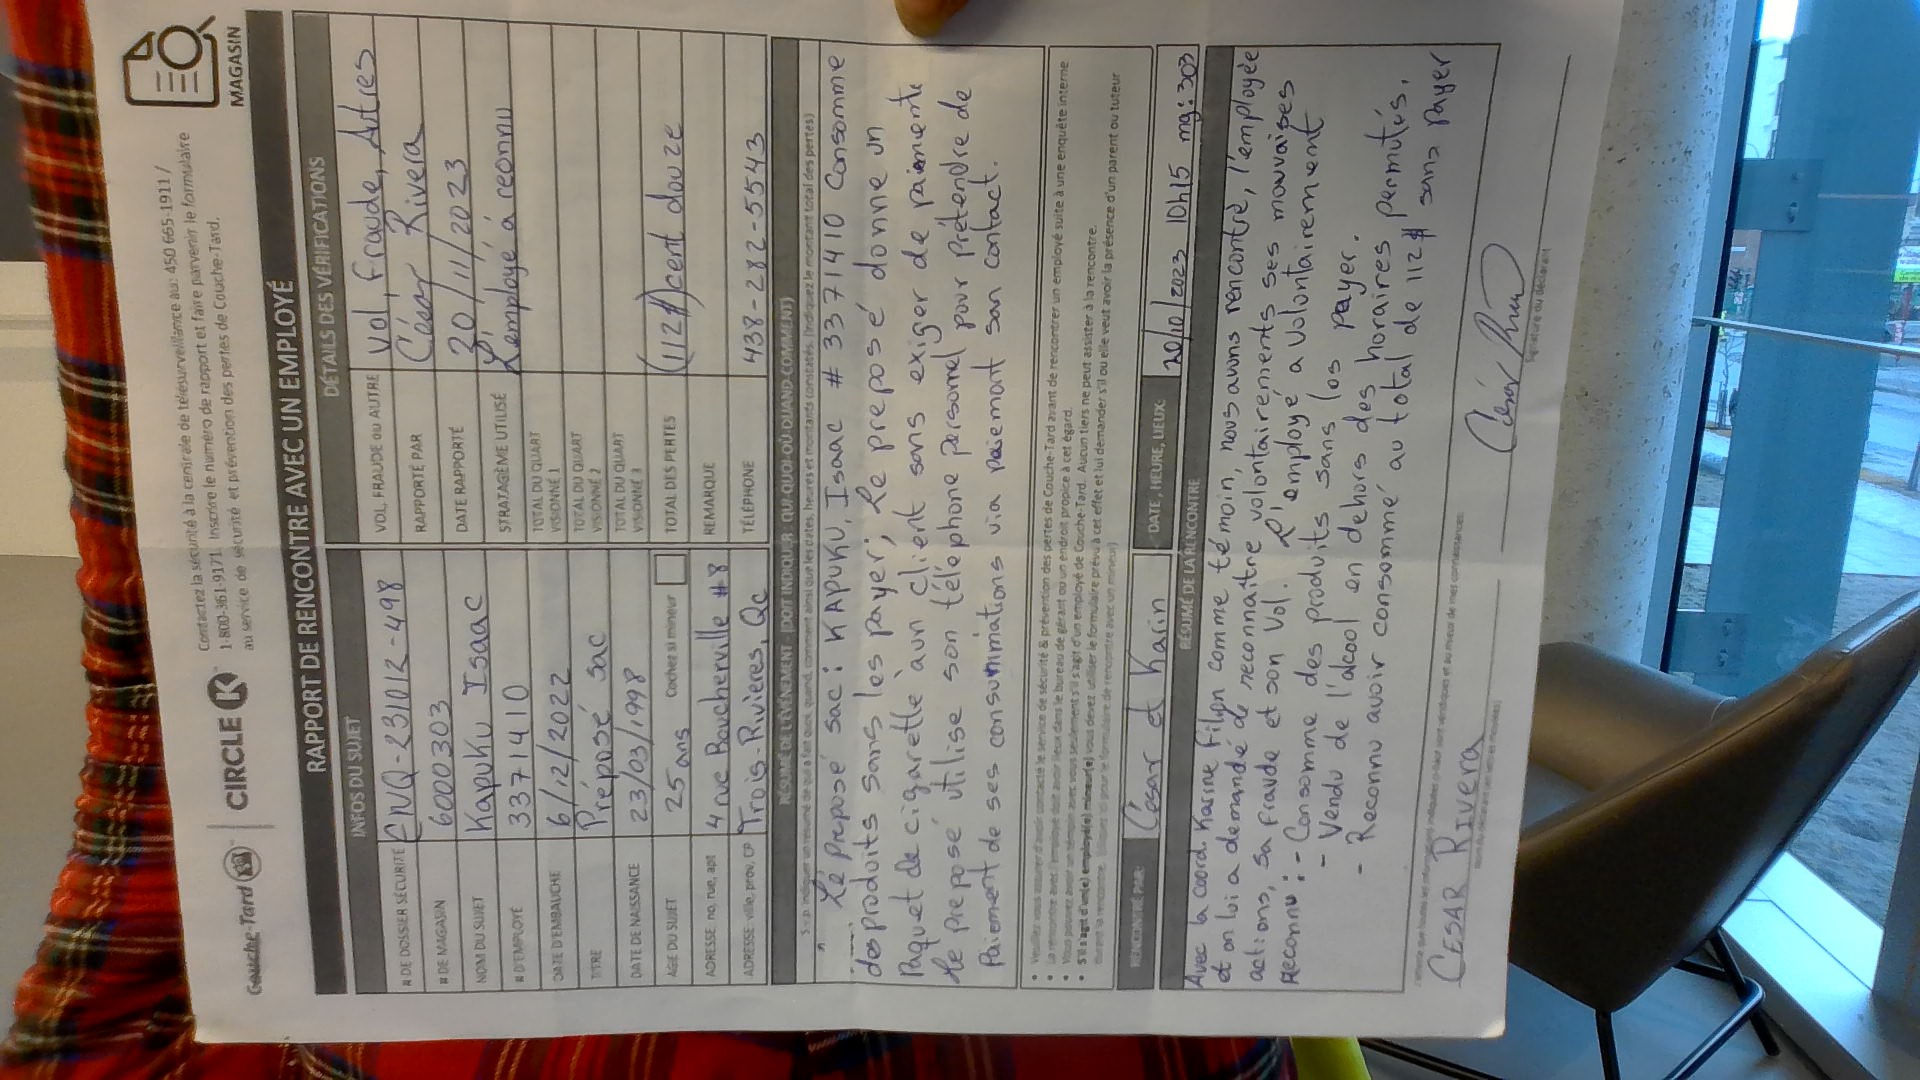 Couche-Tard
CIRCLE K
Contactez la sécurité à la centrale de télésurveillance au: 450 665-1911 /
1-800-361-9171 Inscrire le numéro de rapport et faire parvenir le formulaire
au service de sécurité et prévention des pertes de Couche-Tard.
MAGASIN
RAPPORT DE RENCONTRE AVEC UN EMPLOYÉ
INFOS DU SUJET
# DE DOSSIER SÉCURITÉ ENQ-231012-498
# DE MAGASIN 6000303
NOM DU SUJET Kapuku Isaac
# D'EMPLOYÉ 3371410
DATE D'EMBAUCHE 6/12/2022
TITRE Préposé sac
DATE DE NAISSANCE 23/03/1998
AGE DU SUJET 25 ans Cochez si mineur
ADRESSE no, rue, apt 4 rue Boucherville #8
ADRESSE ville, prov, CP Trois-Rivières, Qc
DÉTAILS DES VÉRIFICATIONS
VOL, FRAUDE OU AUTRE Vol, fraude, Autres
RAPPORTÉ PAR César Rivera
DATE RAPPORTÉ 20/11/2023
STRATAGÈME UTILISÉ L'employé à reonnu
TOTAL DU QUART VISIONNÉ 1
TOTAL DU QUART VISIONNÉ 2
TOTAL DU QUART VISIONNÉ 3
TOTAL DES PERTES (112$) cent douze
REMARQUE
TÉLÉPHONE 438-282-5543
RÉSUMÉ DE L'ÉVÉNEMENT - (DOIT INDIQUER: QUI-QUOI-OÙ-QUAND-COMMENT)
S.v.p. indiquer un résumé de qui a fait quoi, quand, comment ainsi que les dates, heures et montants constatés. (Indiquez le montant total des pertes)
Le préposé sac: KAPUKU, Isaac # 3371410 Consomme
des produits sans les payer; Le preposé donne un
Paquet de cigarette à un client sans exiger de paiemente
Le preposé utilise son téléphone personel pour Prétendre de
Paiement de ses consummations via paiemant san contact.
Veuillez vous assurer d'avoir contacté le service de sécurité & prévention des pertes de Couche-Tard avant de rencontrer un employé suite à une enquête interne
La rencontre avec l'employé doit avoir lieux dans le bureau de gérant ou un endroit propice à cet égard.
Vous pouvez avoir un témoin avec vous seulement s'il s'agit d'un employé de Couche-Tard. Aucun tiers ne peut assister à la rencontre.
S'il s'agit d'un(e) employé(e) mineur(e) vous devez utiliser le formulaire prévu à cet effet et lui demander s'il ou elle veut avoir la présence d'un parent ou tuteur
durant la rencontre.
RENCONTRÉ PAR: César et Karin DATE, HEURE, LIEUX: 20/10/2023 10h15 mg: 303
RÉSUMÉ DE LA RENCONTRE
Avec la coord. Karine Filyon comme témoin, nous avons rencontré, l'employée
et on lui a demandé de reconnaitre volontairements ses mauvaises
actions, sa fraude et son vol. L'employé a volontairement
Reconnu: - Consomme des produits sans los payer.
- Vendu de l'alcool en dehors des horaires permutés.
- Reconnu avoir consommé au total de 112$ sans payer
CESAR Rivera
Signature du déclarant